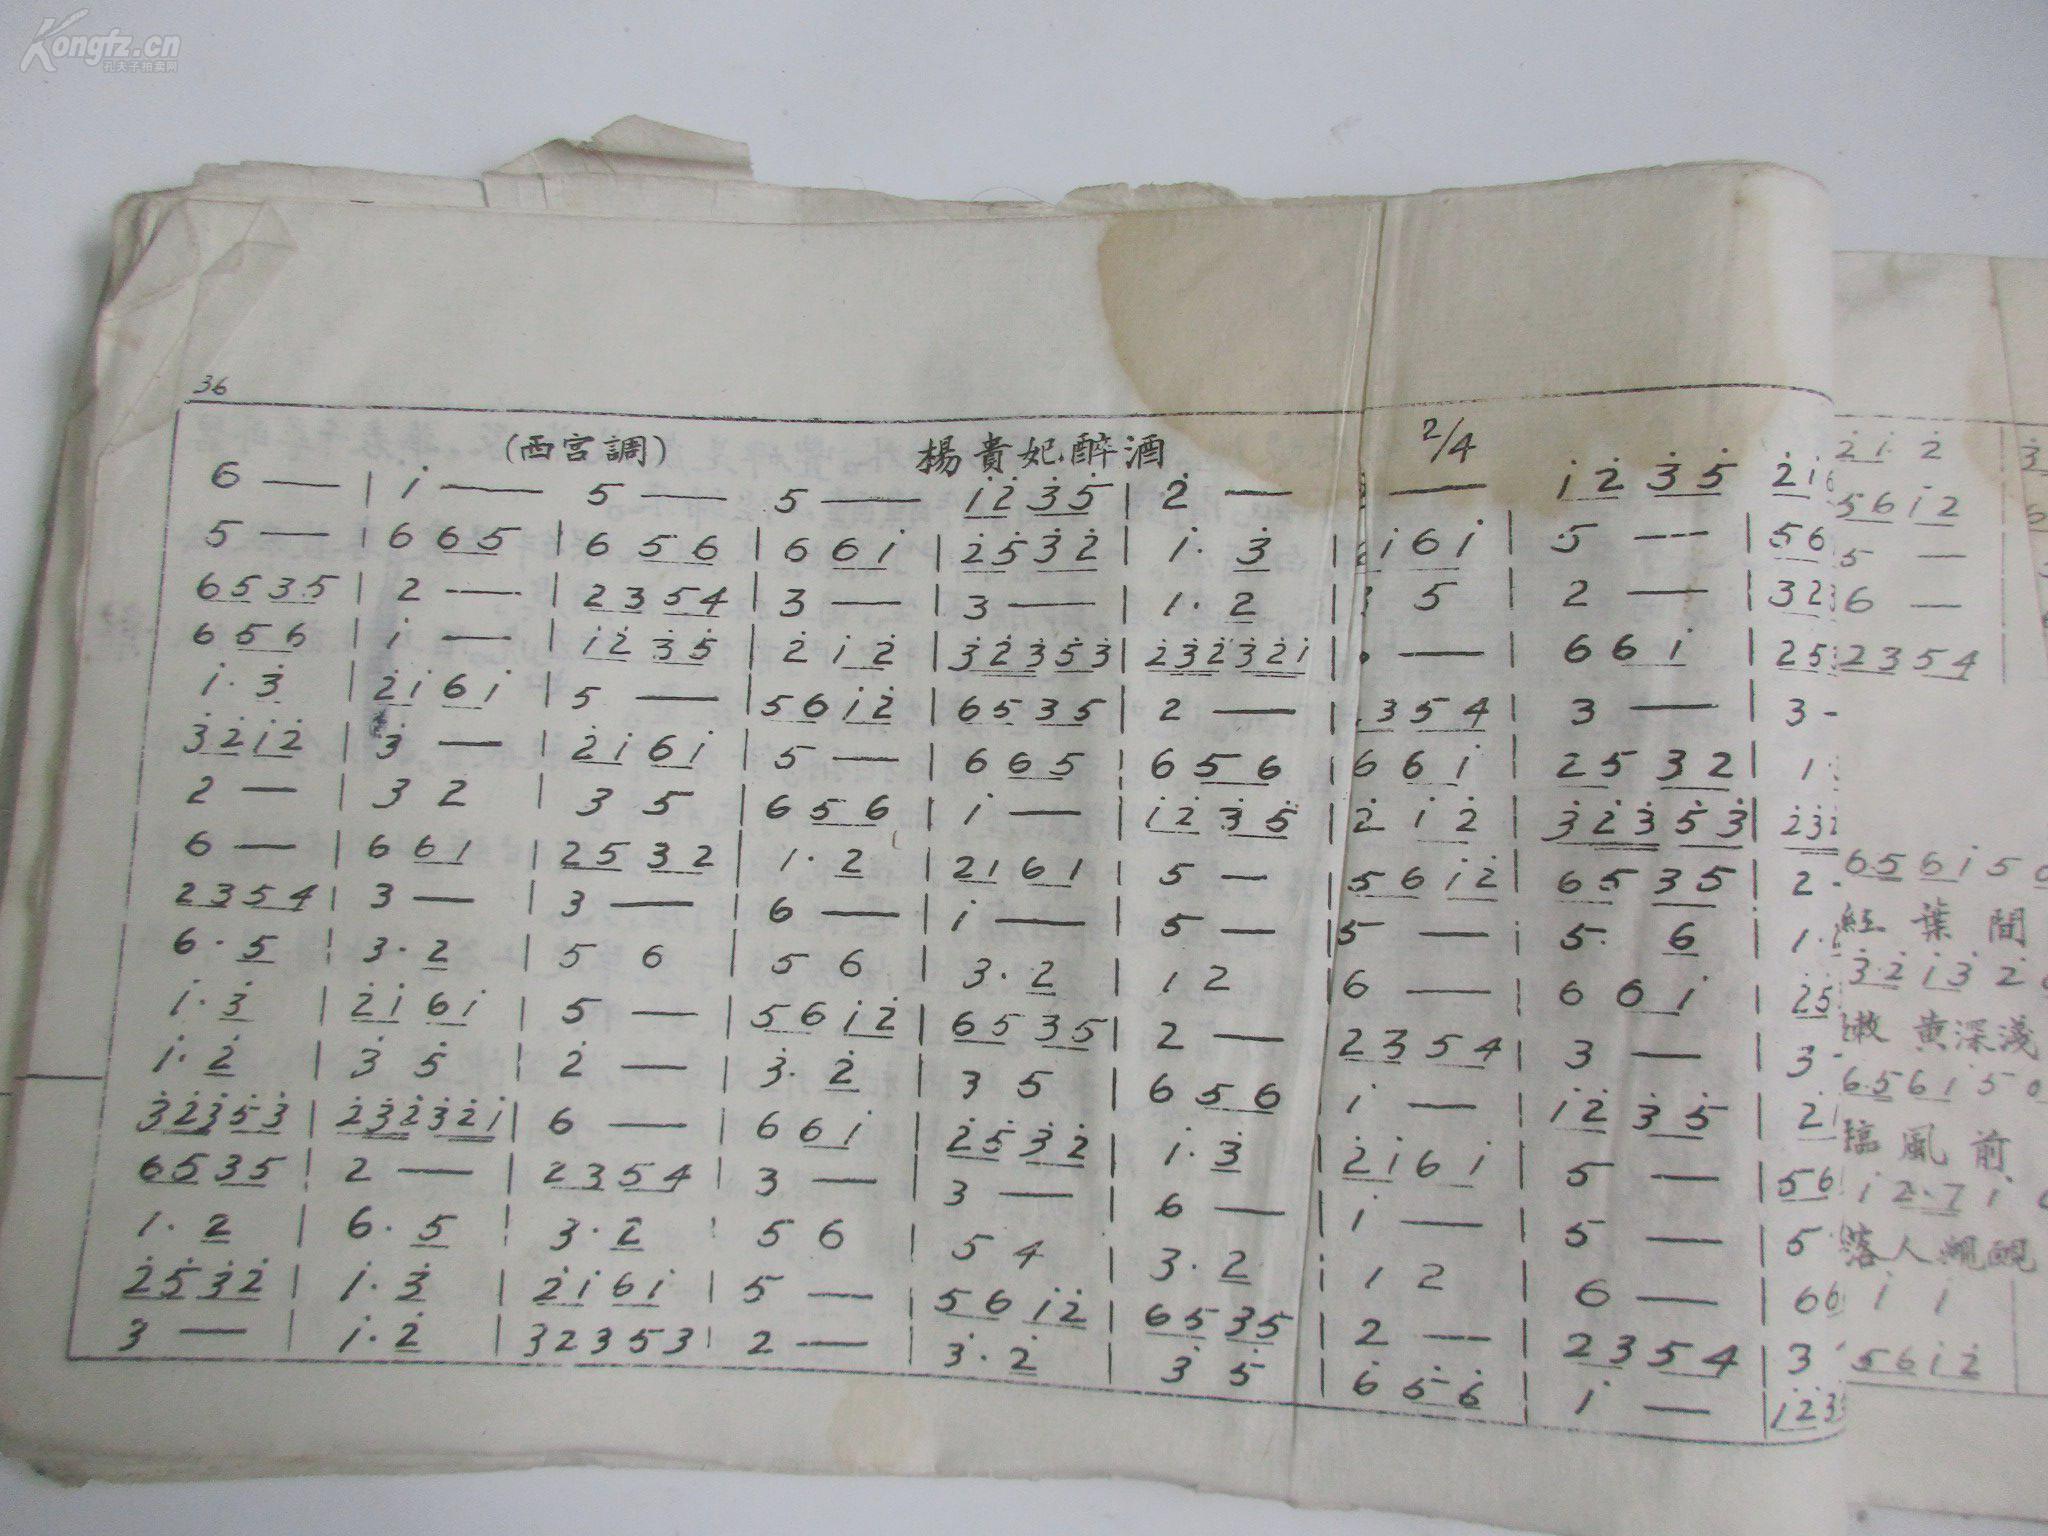 Kongfz.cn
孔夫子拍卖网
36
(西宫調) 楊貴妃醉酒 2/4
6 — | i — 5 — 5 — i̇2̇ 3̇5̇ | 2̇ — — i̇2̇ 3̇5̇ 2̇i
5 — | 6 65 | 6 56 | 6 6i | 2̇5̇ 3̇2̇ | i· 3̇ | 2̇i 6i | 5 — | 56
6535 | 2 — | 2354 | 3 — | 3 — | 1· 2 | 5 | 2 — | 32
6 56 | i — | i2̇ 3̇5̇ | 2̇ i2̇ | 3̇2̇3̇5̇3̇ | 2̇3̇2̇3̇2̇i | — | 6 6i | 25
i· 3̇ | 2̇i 6i | 5 — | 56 i2̇ | 6535 | 2 — | 354 | 3 — | 3 -
3̇2̇i2̇ | 3̇ — | 2̇i 6i | 5 — | 6 65 | 6 56 | 6 6i | 25 32 | 1·
2 — | 3 2 | 3 5 | 6 56 | i — | i2̇ 3̇5̇ | 2̇ i2̇ | 3̇2̇3̇5̇3̇ | 2̇3̇2̇
6 — | 6 61 | 25 32 | 1· 2 | 21 61 | 5 — | 56 i2̇ | 65 35 | 2 -
2354 | 3 — | 3 — | 6 — | i — | 5 — | 5 — | 5· 6 | 1·
6· 5 | 3· 2 | 5 6 | 5 6 | 3· 2 | 1 2 | 6 — | 6 6i | 2̇5̇
i· 3̇ | 2̇i 6i | 5 — | 56 i2̇ | 65 35 | 2 — | 2354 | 3 — | 3 -
i· 2̇ | 3̇ 5̇ | 2̇ — | 3̇· 2̇ | 3 5 | 6 56 | i — | i2̇ 3̇5̇ | 2̇i
3̇2̇3̇5̇3̇ | 2̇3̇2̇3̇2̇i | 6 — | 6 6i | 2̇5̇ 3̇2̇ | i· 3̇ | 2̇i 6i | 5 — | 56
6535 | 2 — | 2354 | 3 — | 3 — | 6 — | i — | 5 — | 5
1· 2 | 6· 5 | 3· 2 | 5 6 | 5 4 | 3· 2 | 1 2 | 6 — | 66
2̇5̇3̇2̇ | i· 3̇ | 2̇i 6i | 5 — | 56 i2̇ | 6535 | 2 — | 2354 | 3
3 — | i· 2̇ | 32353 | 2 — | 3̇· 2̇ | 3̇ 5̇ | 6̇ 5̇6̇ | i — | i2̇3̇
2̇i· 2̇ | 3̇
56i2̇ | 6
5 —
6 —
2354
656i5
經葉間
3̇·2̇i3̇2̇
嫩黄深淺
6·56i5
臨風前
i2·7i
落人
i i
56i2̇